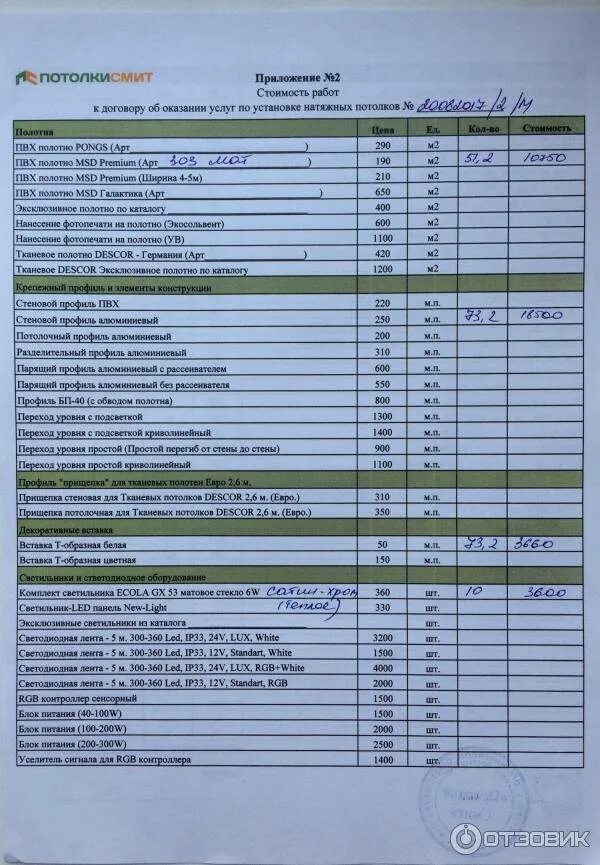 ПОТОЛКИСМИТ
Приложение №2
Стоимость работ
к договору об оказании услуг по установке натяжных потолков № 20082017/2/М
Полотна Цена Ед. Кол-во Стоимость
ПВХ полотно PONGS (Арт____) 290 м2
ПВХ полотно MSD Premium (Арт 303 мат) 190 м2 51,2 10750
ПВХ полотно MSD Premium (Ширина 4-5м) 210 м2
ПВХ полотно MSD Галактика (Арт____) 650 м2
Эксклюзивное полотно по каталогу 400 м2
Нанесение фотопечати на полотно (Экосольвент) 600 м2
Нанесение фотопечати на полотно (УВ) 1100 м2
Тканевое полотно DESCOR - Германия (Арт____) 420 м2
Тканевое DESCOR Эксклюзивное полотно по каталогу 1200 м2
Крепежный профиль и элементы конструкции
Стеновой профиль ПВХ 220 м.п.
Стеновой профиль алюминиевый 250 м.п. 73,2 18500
Потолочный профиль алюминиевый 200 м.п.
Разделительный профиль алюминиевый 310 м.п.
Парящий профиль алюминиевый с рассеивателем 600 м.п.
Парящий профиль алюминиевый без рассеивателя 550 м.п.
Профиль БП-40 (с обводом полотна) 800 м.п.
Переход уровня с подсветкой 1300 м.п.
Переход уровня с подсветкой криволинейный 1400 м.п.
Переход уровня простой (Простой перегиб от стены до стены) 900 м.п.
Переход уровня простой криволинейный 1100 м.п.
Профиль "прищепка" для тканевых полотен Евро 2,6 м.
Прищепка стеновая для Тканевых потолков DESCOR 2,6 м. (Евро.) 310 м.п.
Прищепка потолочная для Тканевых потолков DESCOR 2,6 м. (Евро.) 350 м.п.
Декоративные вставка
Вставка Т-образная белая 50 м.п. 73,2 3660
Вставка Т-образная цветная 150 м.п.
Светильники и стветодиодное оборудование
Комплект светильника ECOLA GX 53 матовое стекло 6W сатин-хром 360 шт. 10 3600
Светильник-LED панель New-Light (теплое) 330 шт.
Эксклюзивные светильники из каталога шт.
Светодиодная лента - 5 м. 300-360 Led, IP33, 24V, LUX, White 3200 шт.
Светодиодная лента - 5 м. 300-360 Led, IP33, 12V, Standart, White 1500 шт.
Светодиодная лента - 5 м. 300-360 Led, IP33, 24V, LUX, RGB+White 4000 шт.
Светодиодная лента - 5 м. 300-360 Led, IP33, 12V, Standart, RGB 2000 шт.
RGB контроллер сенсорный 1500 шт.
Блок питания (40-100W) 1500 шт.
Блок питания (100-200W) 2000 шт.
Блок питания (200-300W) 2500 шт.
Уселитель сигнала для RGB контроллера 1400 шт.
ОТЗОВИК